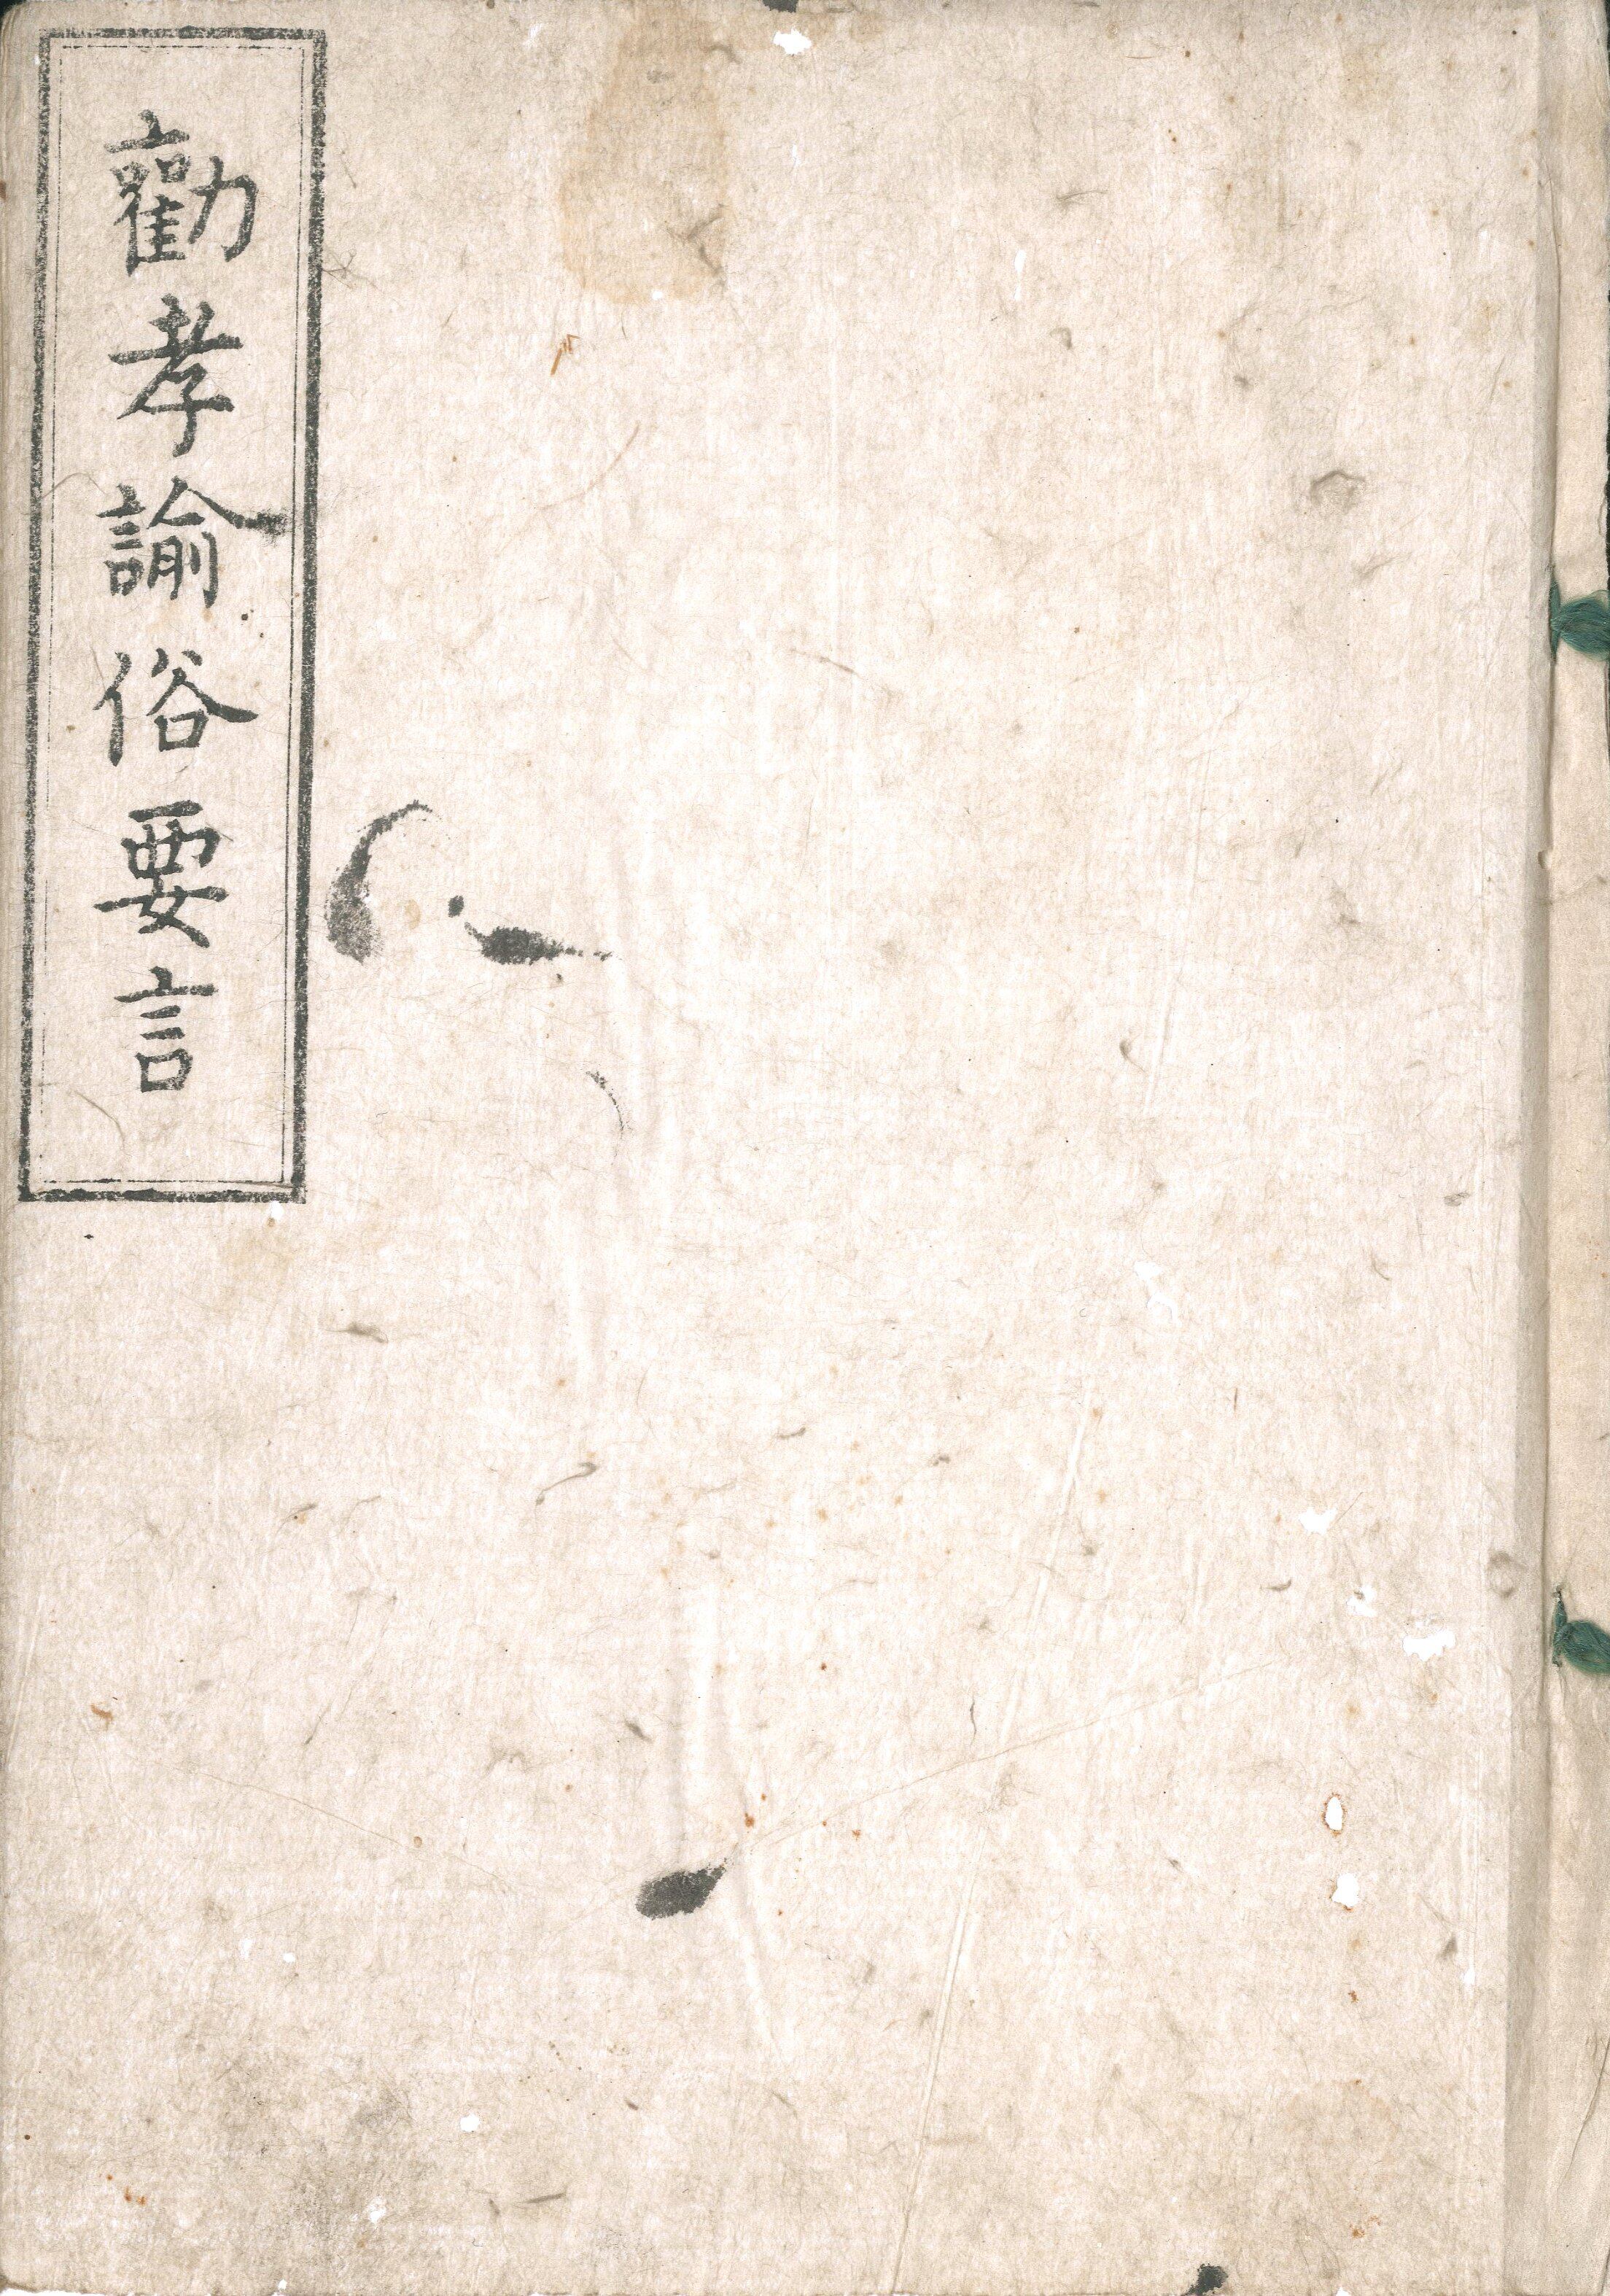 勸孝諭俗要言